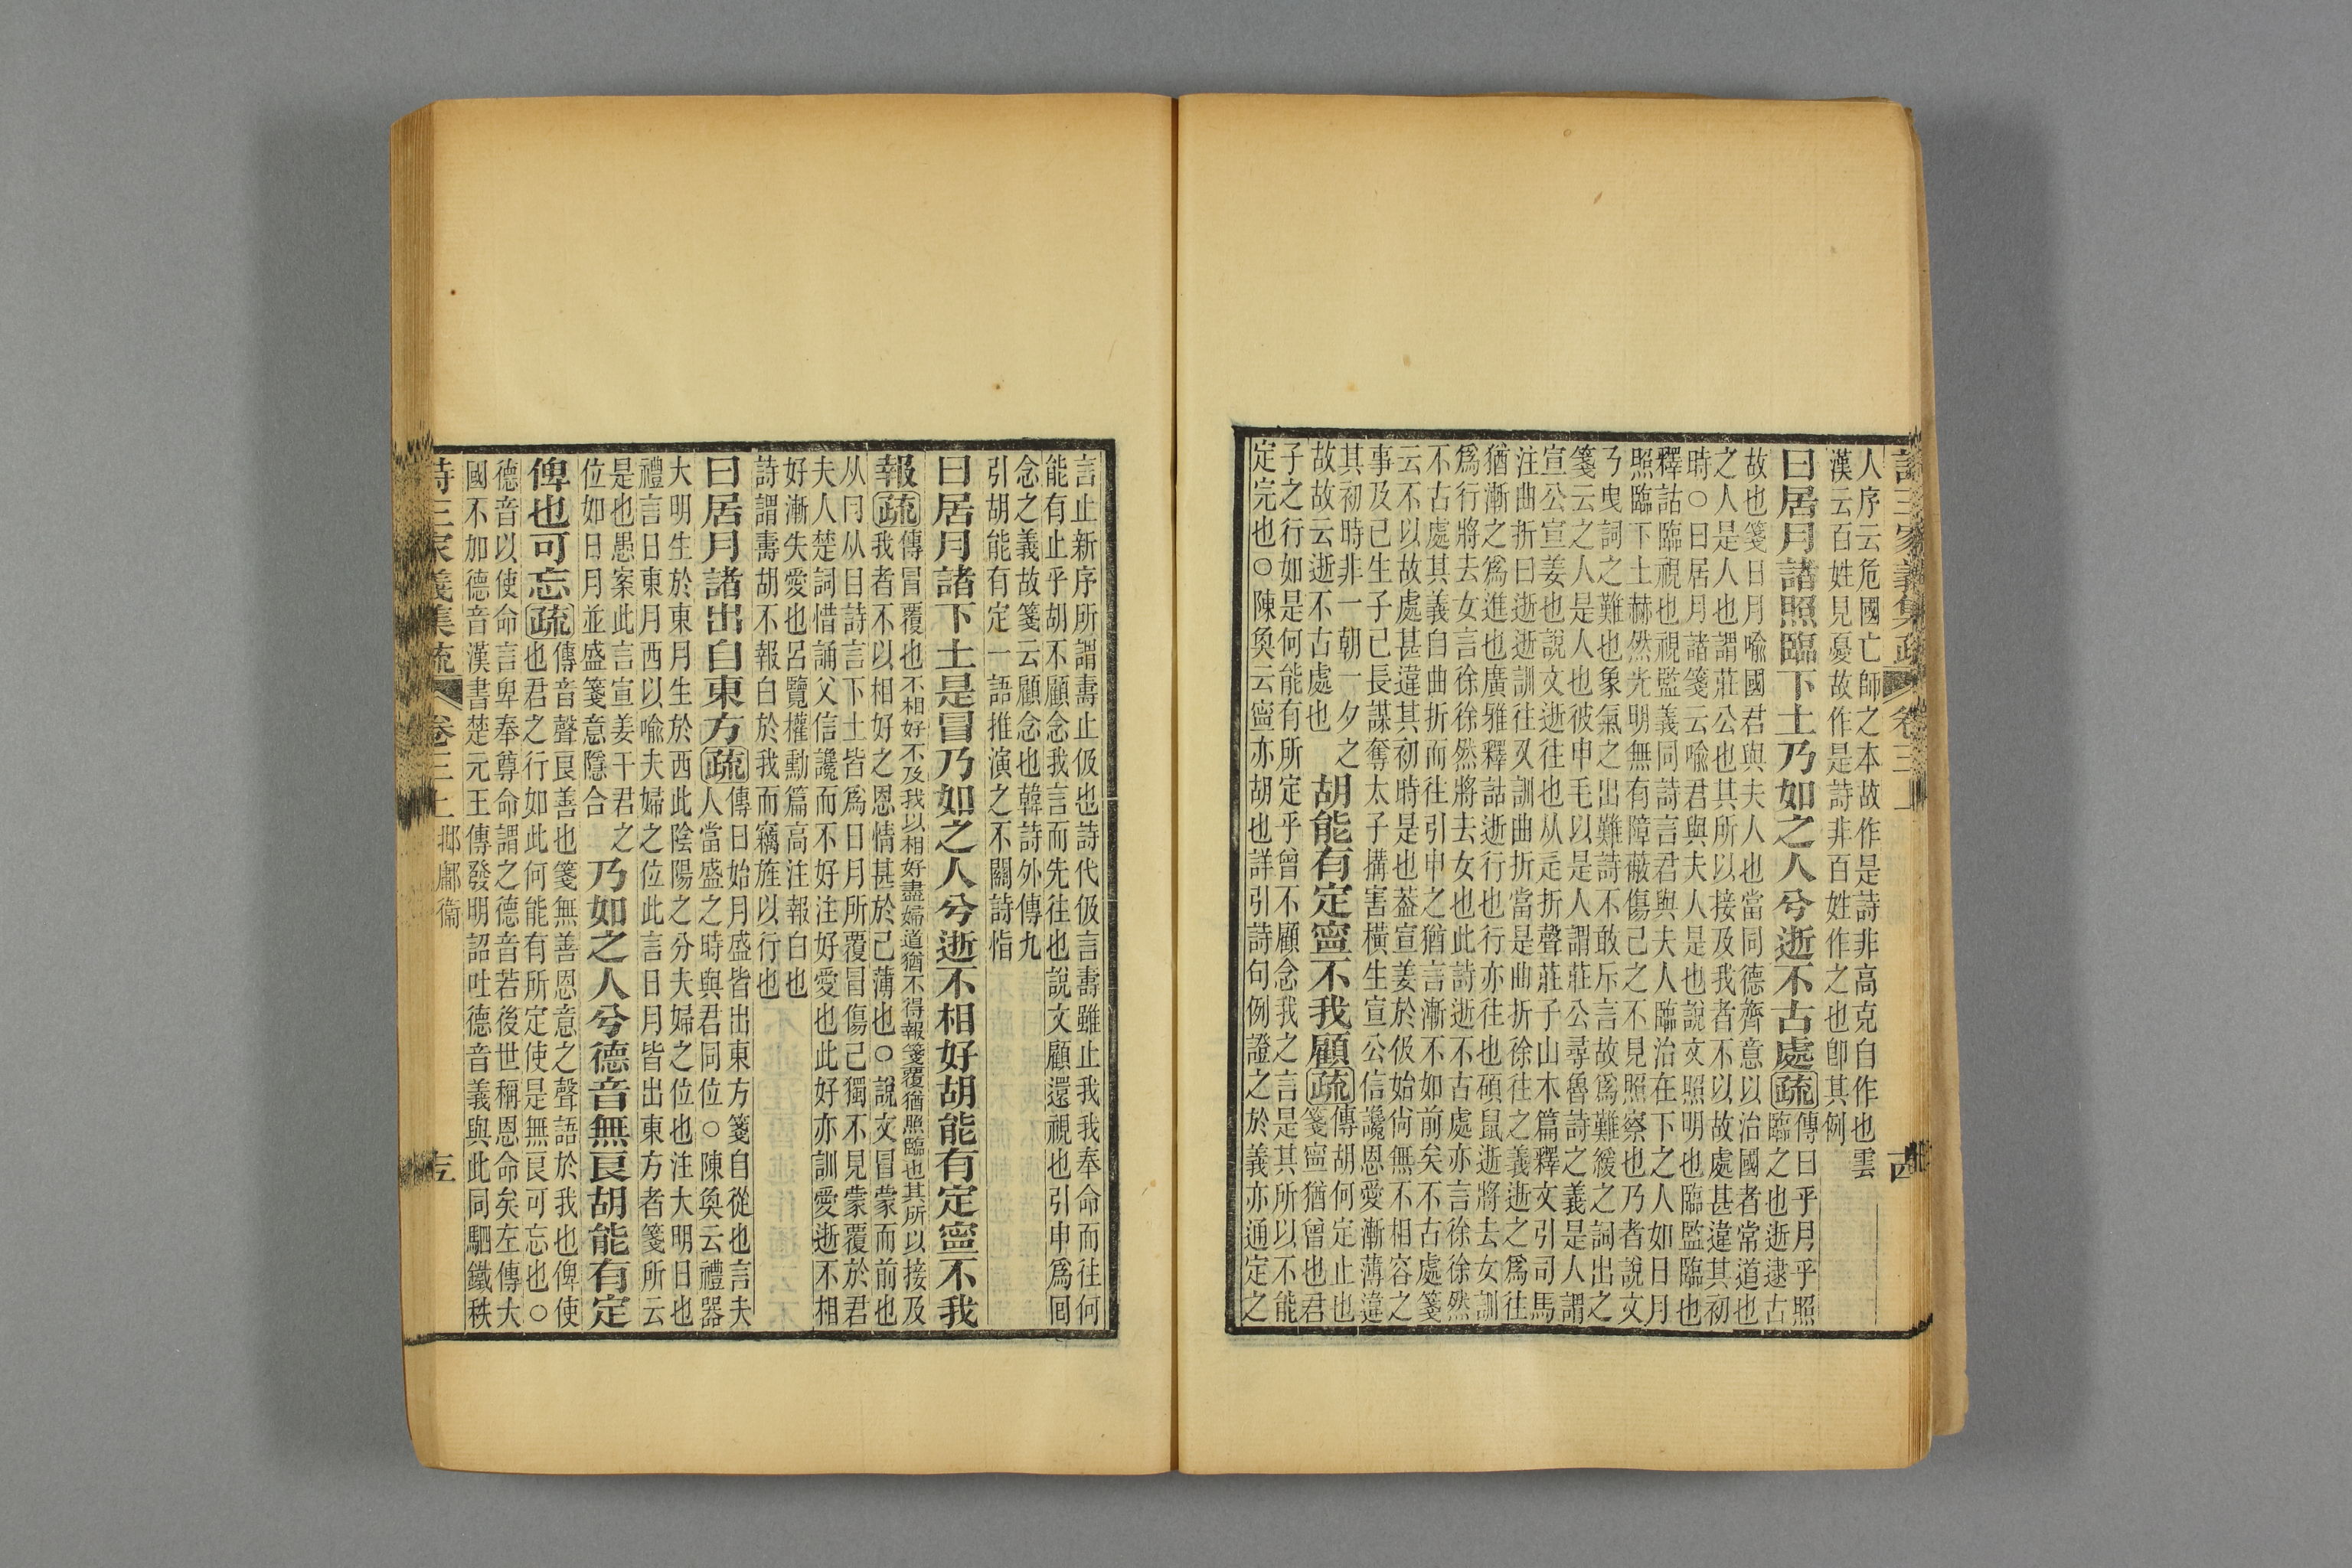 詩三家義集疏
卷三上
古
人序云危國亡師之本故作是詩非高克自作也雲
漢云百姓見憂故作是詩非百姓作之也卽其例
日居月諸照臨下土乃如之人兮逝不古處疏
傳曰乎月乎照
臨之也逝逮古
故也箋日月喻國君與夫人也當同德齊意以治國者常道也
之人是人也謂莊公也其所以接及我者不以故處甚違其初
時○日居月諸箋云喻君與夫人是也說文照明也臨監臨也
釋詁臨視也視監義同詩言君與夫人臨治在下之人如日月
照臨下土赫然光明無有障蔽傷己之不見照察也乃者說文
乃曳詞之難也象氣之出難詩不敢斥言故爲難緩之詞出之
箋云之人是人也彼申毛以是人謂莊公尋魯詩之義是人謂
宣公宣姜也說文逝往也从辵折聲莊子山木篇釋文引司馬
注曲折曰逝逝訓往又訓曲折當是曲折徐往之義逝之爲往
猶漸之爲進也廣雅釋詁逝行也行亦往也碩鼠逝將去女訓
爲行將去女言徐徐然將去女也此詩逝不古處亦言徐徐然
不古處其義自曲折而往引申之猶言漸不如前矣不古處箋
云不以故處甚違其初時是也葢宣姜於伋始尙無不相容之
事及己生子己長謀奪太子搆害橫生宣公信讒恩愛漸薄違
其初時非一朝一夕之
故故云逝不古處也
胡能有定寧不我顧疏
傳胡何定止也
箋寧猶曾也君
子之行如是何能有所定乎曾不顧念我之言是其所以不能
定完也○陳奐云寧亦胡也詳引詩句例證之於義亦通定之
言止新序所謂壽止伋也詩代伋言壽雖止我我奉命而往何
能有止乎胡不顧念我言而先往也說文顧還視也引申爲囘
念之義故箋云顧念也韓詩外傳九
引胡能有定一語推演之不關詩恉
日居月諸下土是冒乃如之人兮逝不相好胡能有定寧不我
報疏
傳冒覆也不相好不及我以相好盡婦道猶不得報箋覆猶照臨也其所以接及
我者不以相好之恩情甚於己薄也○說文冒蒙而前也
从冃从目詩言下土皆爲日月所覆冒傷己獨不見蒙覆於君
夫人楚詞惜誦父信讒而不好注好愛也此好亦訓愛逝不相
好漸失愛也呂覽權勳篇高注報白也
詩謂壽胡不報白於我而竊旌以行也
日居月諸出自東方疏
傳日始月盛皆出東方箋自從也言夫
人當盛之時與君同位○陳奐云禮器
大明生於東月生於西此陰陽之分夫婦之位也注大明日也
禮言日東月西以喻夫婦之位此言日月皆出東方者箋所云
是也愚案此言宣姜干君之
位如日月並盛箋意隱合
乃如之人兮德音無良胡能有定
俾也可忘疏
傳音聲良善也箋無善恩意之聲語於我也俾使
也君之行如此何能有所定使是無良可忘也○
德音以使命言卑奉尊命謂之德音若後世稱恩命矣左傳大
國不加德音漢書楚元王傳發明詔吐德音義與此同駟鐵秩
詩三家義集疏
卷三上
邶鄘衞